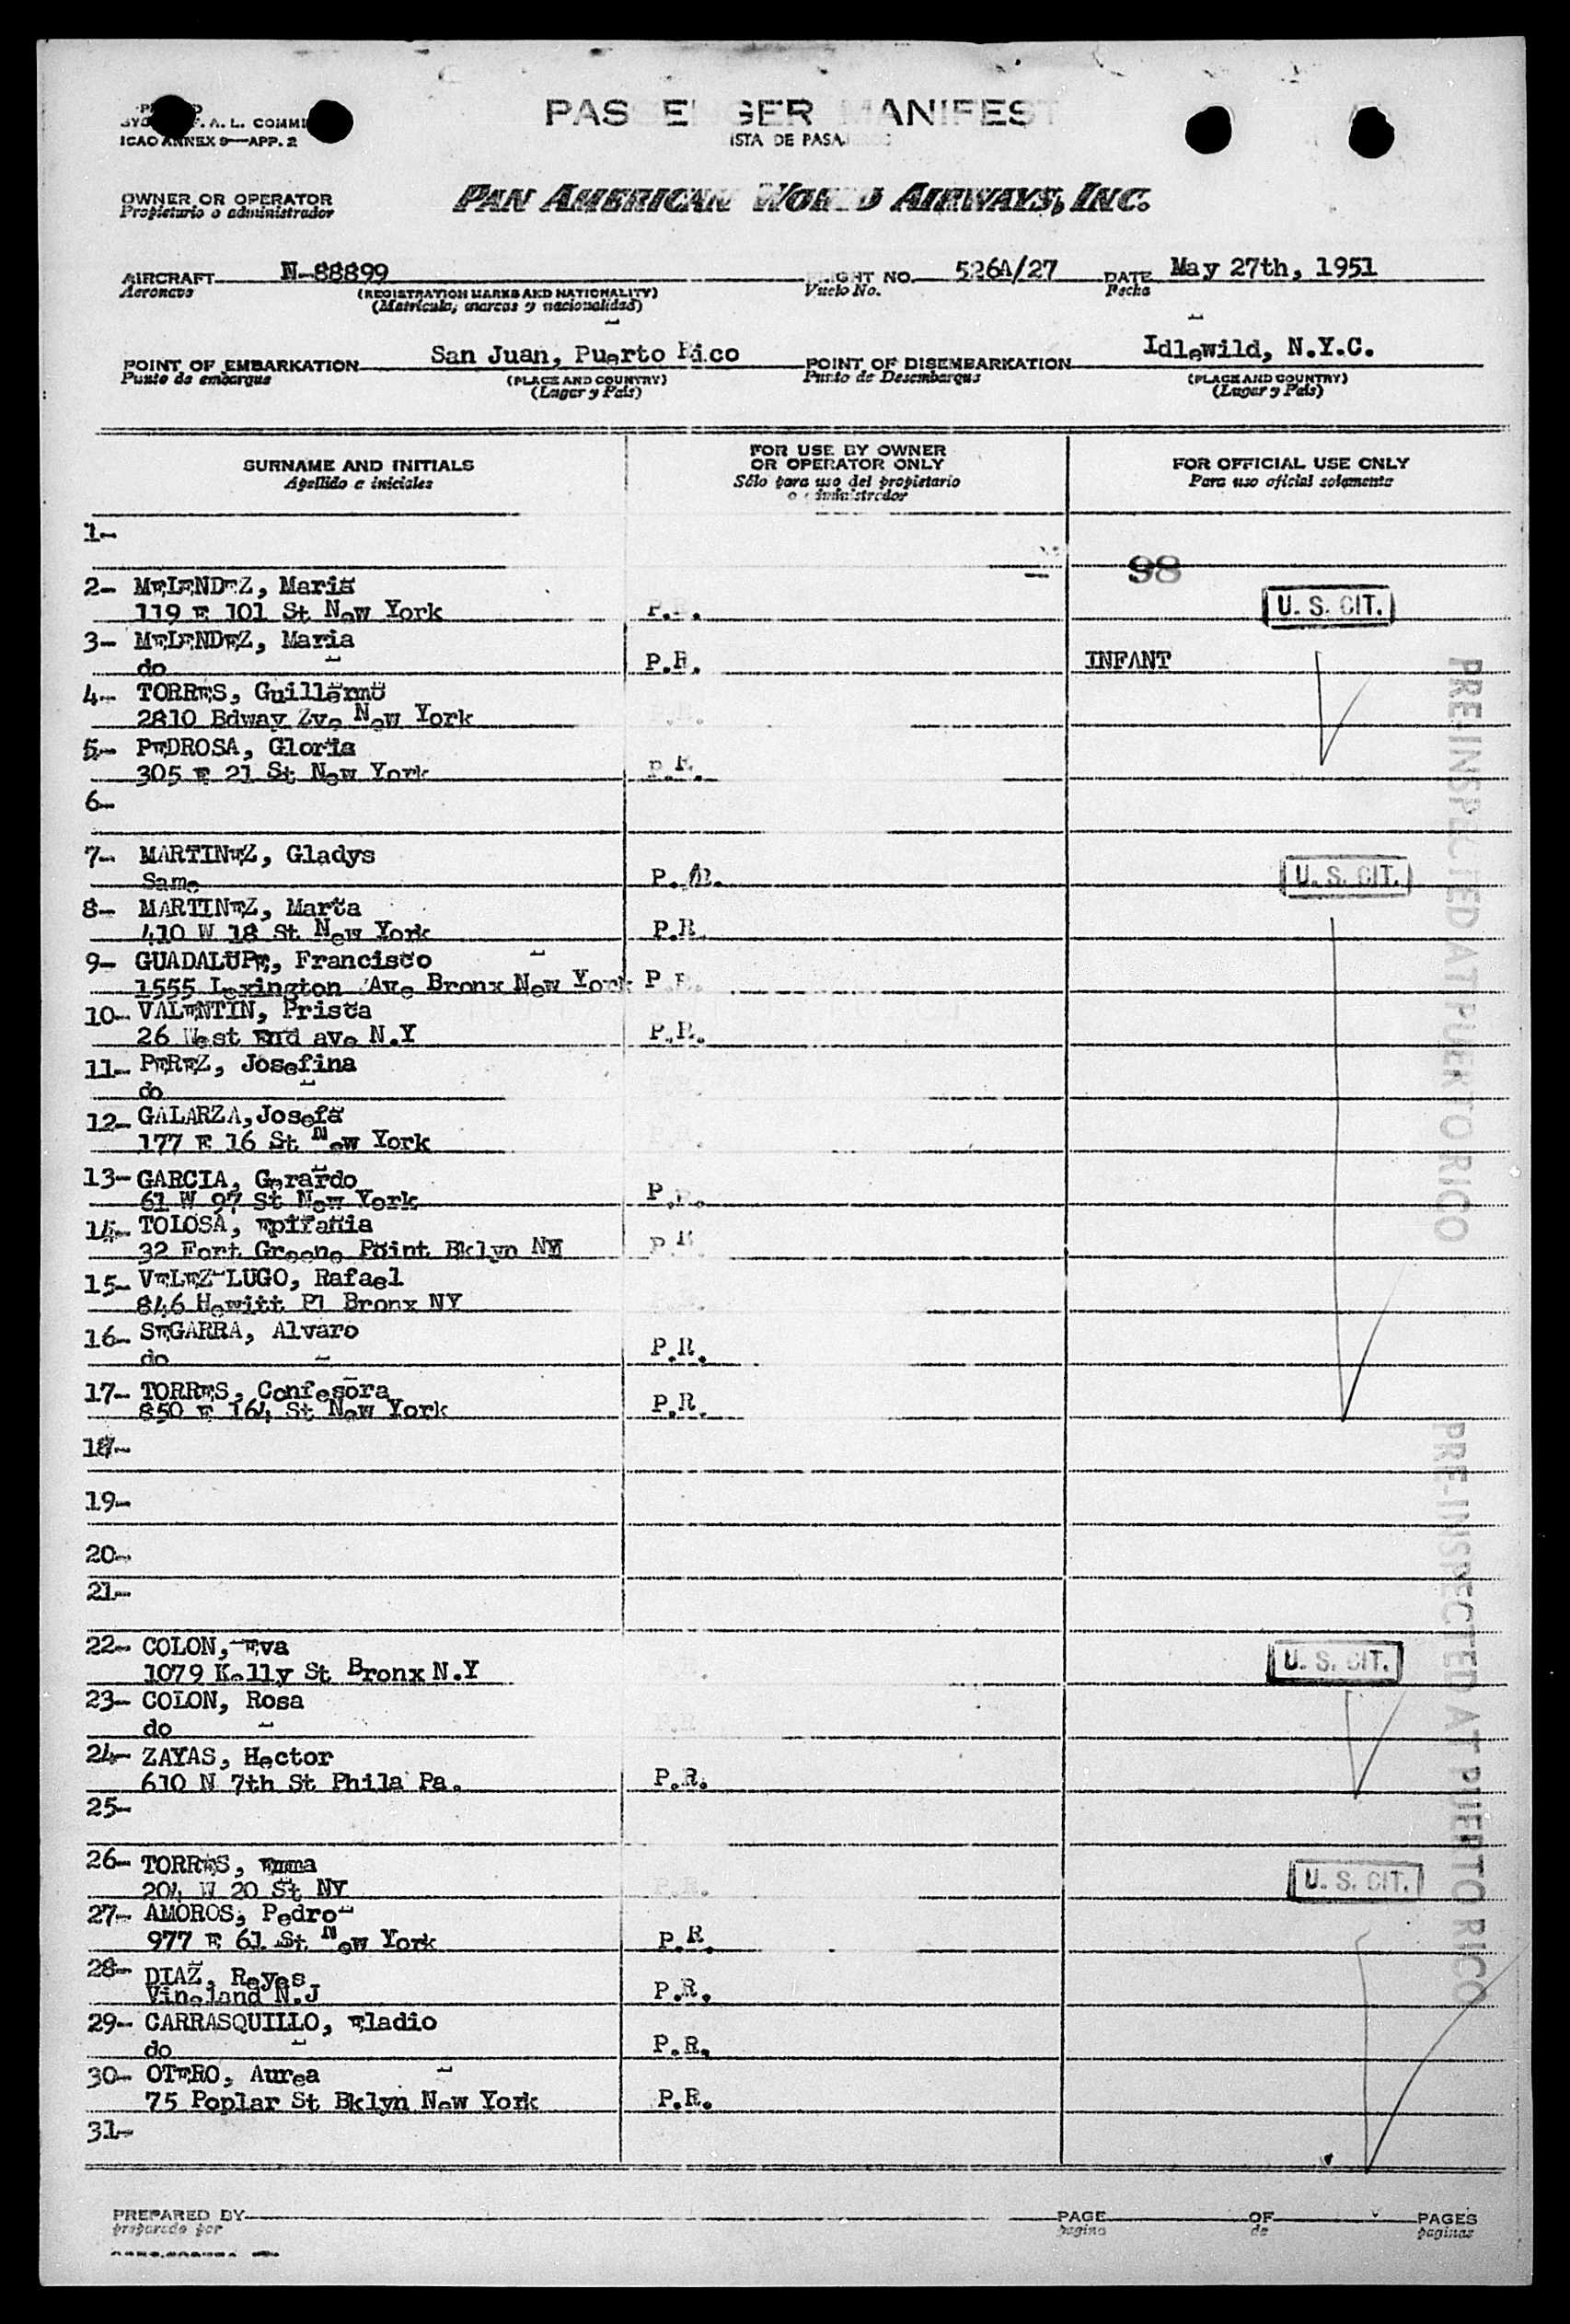 F. A. L. COMMI
ICAO ANNEX 9—APP. 2
PASSENGER MANIFEST
LISTA DE PASAJEROS
OWNER OR OPERATOR
Propietario o administrador
PAN AMERICAN WORLD AIRWAYS, INC.
AIRCRAFT N-88899 FLIGHT NO. 526A/27 DATE May 27th, 1951
Aeronave (REGISTRATION MARKS AND NATIONALITY) Vuelo No. Fecha
(Matricula, marcas y nacionalidad)
POINT OF EMBARKATION San Juan, Puerto Rico POINT OF DISEMBARKATION Idlewild, N.Y.C.
Punto de embarque (PLACE AND COUNTRY) Punto de Desembarque (PLACE AND COUNTRY)
(Lugar y País) (Lugar y País)
SURNAME AND INITIALS FOR USE BY OWNER OR OPERATOR ONLY FOR OFFICIAL USE ONLY
Apellido e iniciales Sólo para uso del propietario o administrador Para uso oficial solamente
1-
98
2- MELENDEZ, Maria
119 E 101 St New York P.R. U. S. CIT.
3- MELENDEZ, Maria
do P.R. INFANT
4- TORRES, Guillermo
2810 Bdway Zve New York P.R.
5- PEDROSA, Gloria
305 E 21 St New York P.R.
6-
7- MARTINEZ, Gladys
Same P.R. U. S. CIT.
8- MARTINEZ, Marta
410 W 18 St New York P.R.
9- GUADALUPE, Francisco
1555 Lexington Ave Bronx New York P.R.
10- VALENTIN, Prisca
26 West End ave N.Y P.R.
11- PEREZ, Josefina
do
12- GALARZA, Josefa
177 E 16 St New York P.R.
13- GARCIA, Gerardo
61 W 97 St New York P.R.
14- TOLOSA, Epifania
32 Fort Greene Point Bklyn NY P.R.
15- VELEZ-LUGO, Rafael
846 Hewitt Pl Bronx NY P.R.
16- SEGARRA, Alvaro
do P.R.
17- TORRES, Confesora
850 E 164 St New York P.R.
18-
19-
20-
21-
22- COLON, Eva
1079 Kelly St Bronx N.Y U. S. CIT.
23- COLON, Rosa
do P.R.
24- ZAYAS, Hector
610 N 7th St Phila Pa. P.R.
25-
26- TORRES, Emma
204 W 20 St NY P.R. U. S. CIT.
27- AMOROS, Pedro
977 E 61 St New York P.R.
28- DIAZ, Reyes
Vineland N.J P.R.
29- CARRASQUILLO, Eladio
do P.R.
30- OTERO, Aurea
75 Poplar St Bklyn New York P.R.
31-
PRE-INSPECTED AT PUERTO RICO
PRE-INSPECTED AT PUERTO RICO
PREPARED BY PAGE OF PAGES
preparado por pagina de paginas